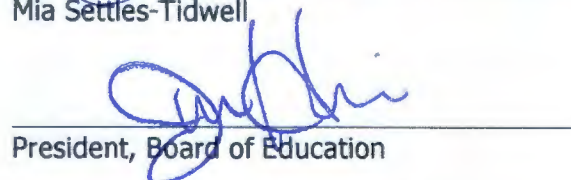 Mia Settles-Tidwell
President, Board of Education